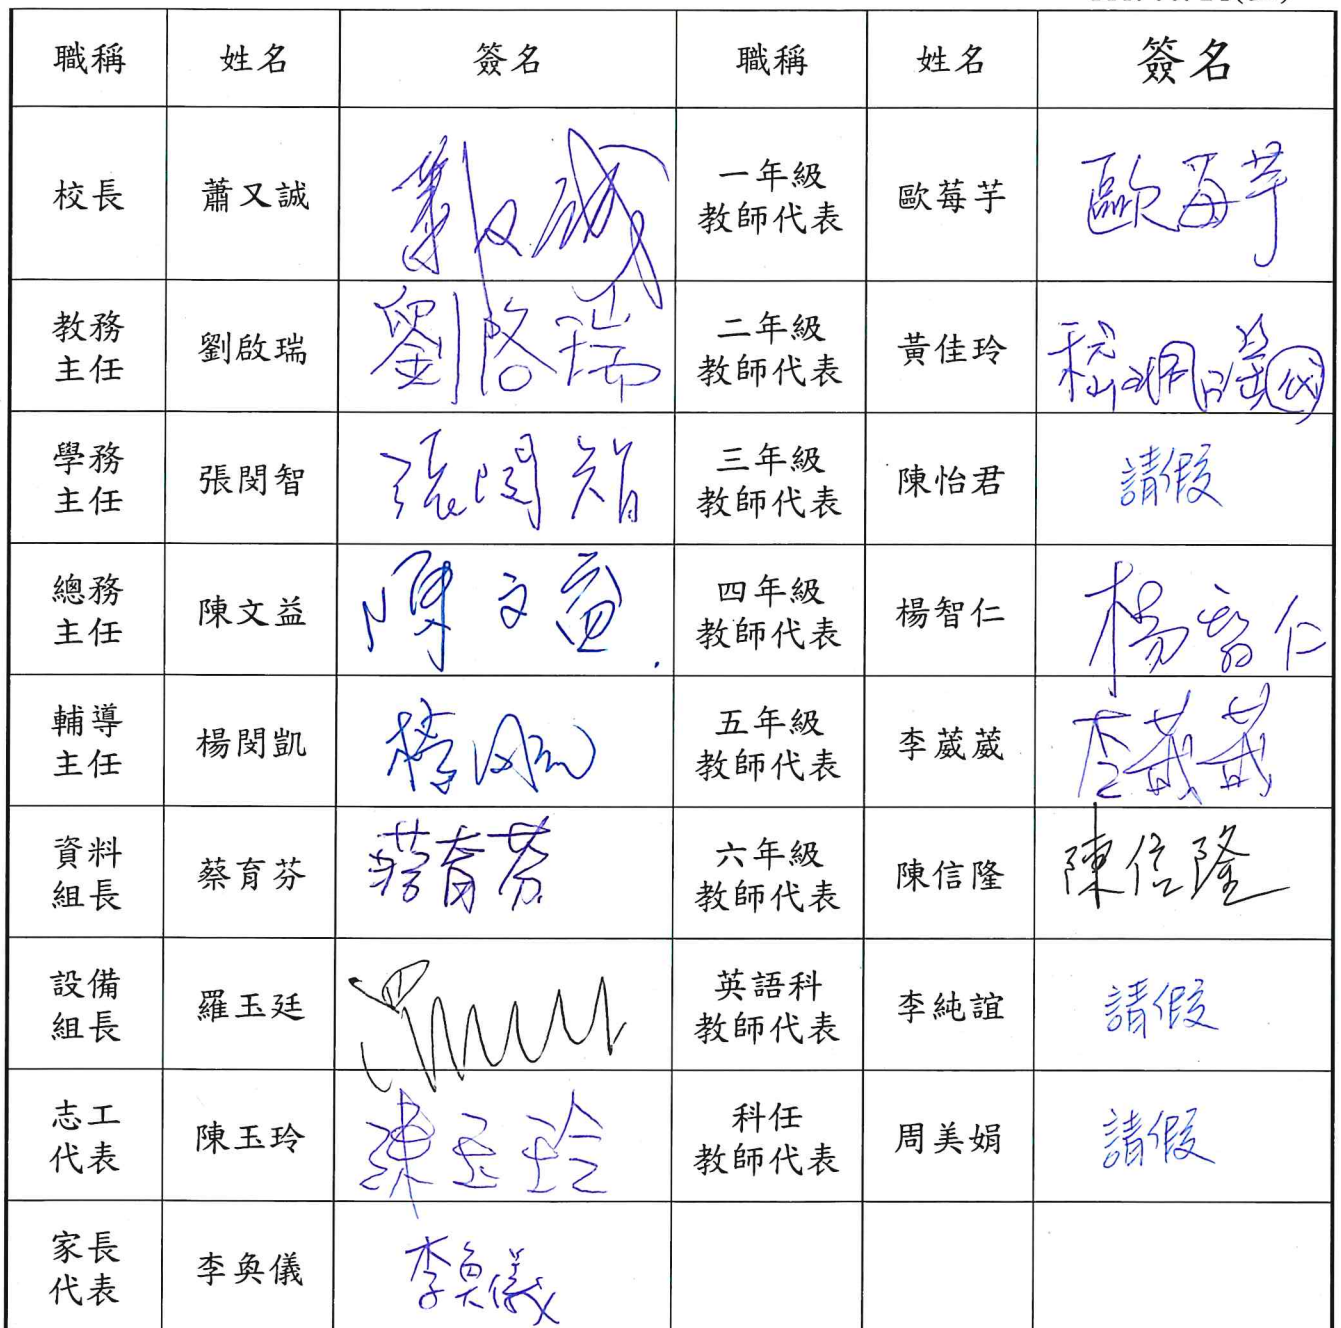 職稱 姓名 簽名 職稱 姓名 簽名
校長 蕭又誠 一年級 教師代表 歐莓芋 歐莓芋
教務 主任 劉啟瑞 劉啓瑞 二年級 教師代表 黃佳玲
學務 主任 張閔智 張閔智 三年級 教師代表 陳怡君 請假
總務 主任 陳文益 陳文益 四年級 教師代表 楊智仁 楊智仁
輔導 主任 楊閔凱 五年級 教師代表 李葳葳 李葳葳
資料 組長 蔡育芬 蔡育芬 六年級 教師代表 陳信隆 陳信隆
設備 組長 羅玉廷 英語科 教師代表 李純誼 請假
志工 代表 陳玉玲 陳玉玲 科任 教師代表 周美娟 請假
家長 代表 李奐儀 李奐儀